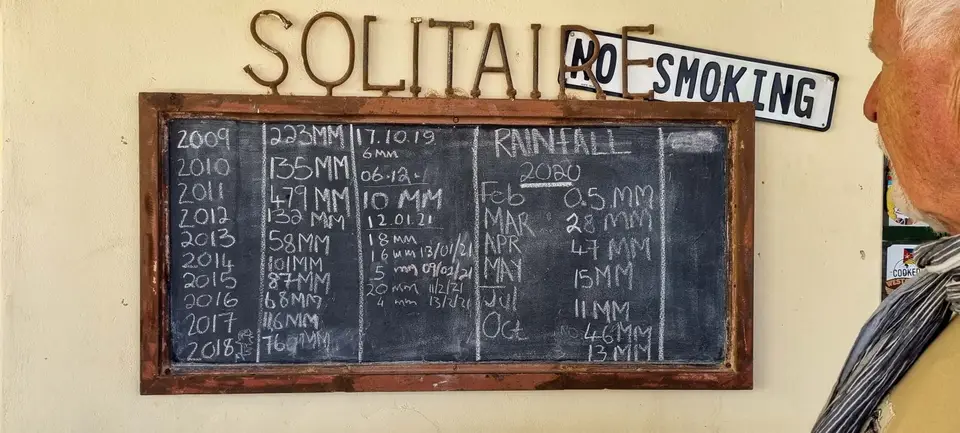 SOLITAIRE
NO SMOKING
2009 223MM
2010 135MM
2011 479MM
2012 132MM
2013 58MM
2014 101MM
2015 87MM
2016 68MM
2017 116MM
2018 76 MM
17.10.19
6MM
06.12
10 MM
12.01.21
18 mm
16 mm 13/01/21
5 mm 09/02/21
20 mm 11/2/21
4 mm 13/2/21
RAINFALL
2020
Feb 0.5 MM
MAR 28 MM
APR 47 MM
MAY 15MM
Jul 11MM
Oct 46MM
13 MM
COOKED